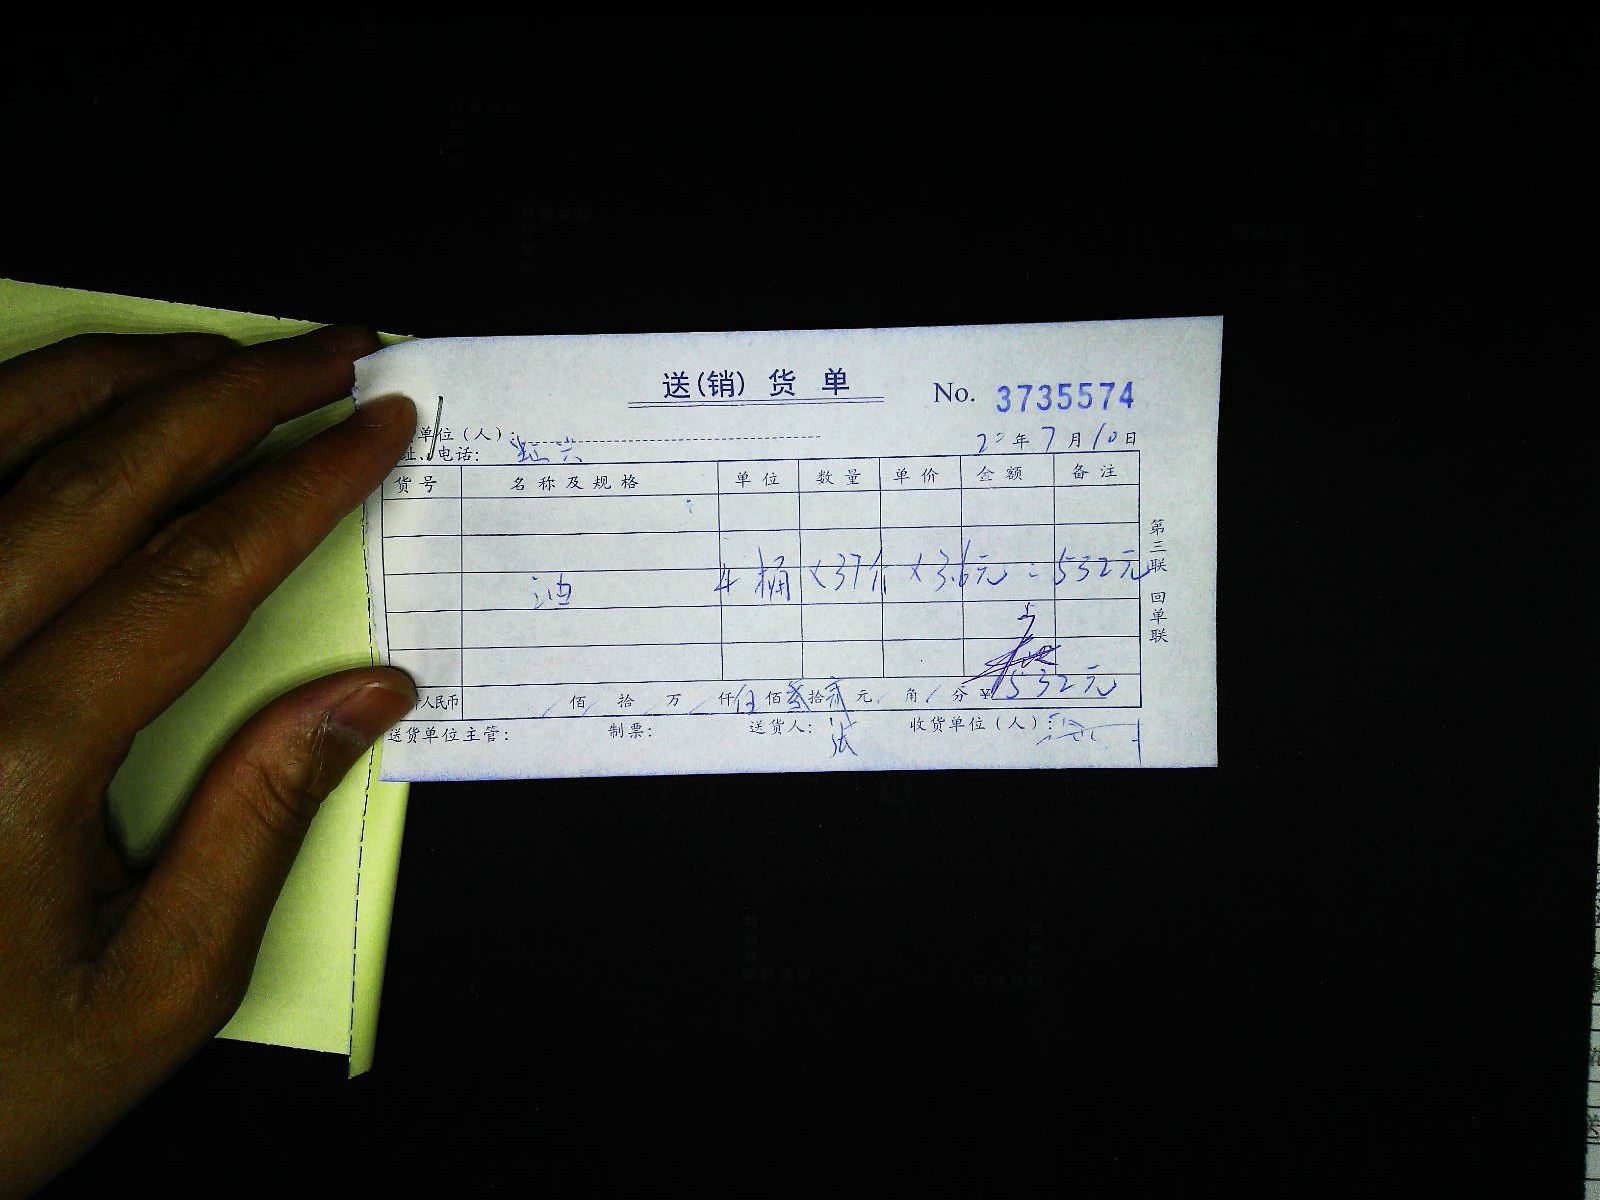 送(销) 货 单
No. 3735574
单位(人):
20年7月10日
址、电话:
货号 名称及规格 单位 数量 单价 金额 备注
油 4桶 × 37斤 × 3.6元 = 532元
人民币 / 佰 / 拾 / 万 / 仟 伍 佰 叁 拾 贰 元 / 角 / 分 ¥532元
送货单位主管: 制票: 送货人: 张 收货单位(人):
第三联 回单联